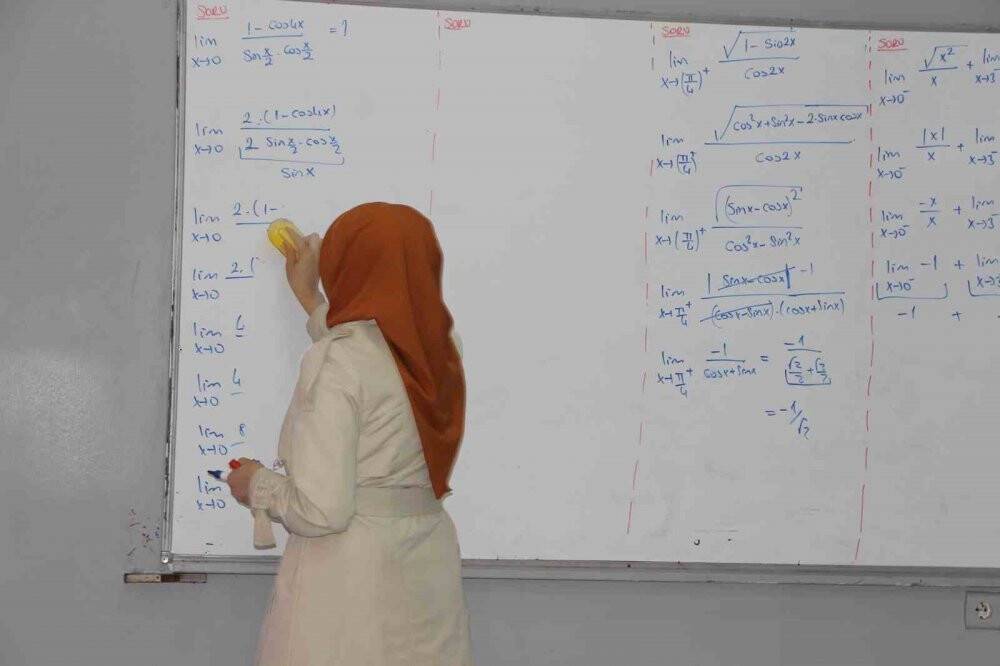 SORU
lim x→0 (1 - cos4x)/(Sin x/2 · cos x/2) = ?
lim x→0 2·(1-cos4x)/(2 Sin x/2 · cos x/2)
Sin x
lim x→0 2·(1-
lim x→0 2·(
lim x→0
lim x→0
lim x→0 8
lim x→0
SORU
SORU
lim x→(π/4)⁺ √(1 - Sin2x)/Cos2x
lim x→(π/4)⁺ √(cos²x+sin²x-2·sinxcosx)/Cos2x
lim x→(π/4)⁺ √((sinx-cosx)²)/(cos²x-sin²x)
lim x→π/4⁺ |sinx-cosx| -1/((cosx-sinx)·(cosx+sinx))
lim x→π/4⁺ -1/(cosx+sinx) = -1/(√2/2+√2/2)
= -1/√2
SORU
lim x→0⁻ √x²/x + lim x→3⁻
lim x→0⁻ |x|/x + lim x→3⁻
lim x→0⁻ -x/x + lim x→3⁻
lim x→0⁻ -1 + lim x→3⁻
-1 +